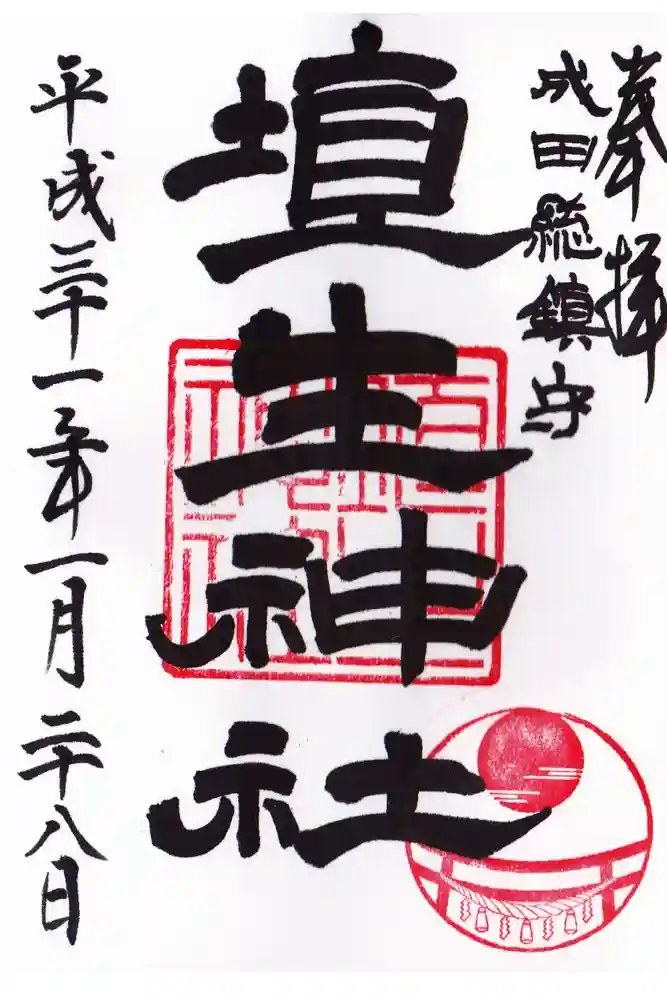 奉拝
成田総鎮守
埴生神社
平成三十一年一月二十八日